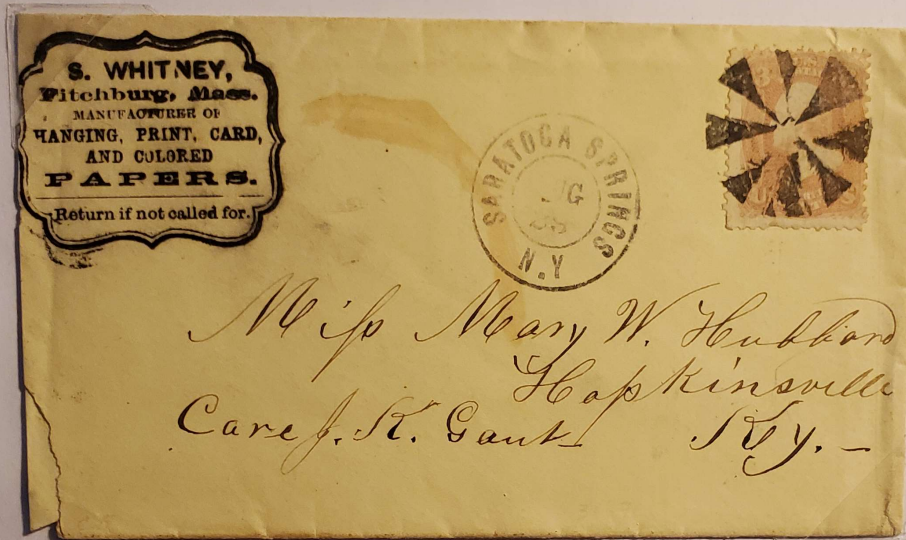 S. WHITNEY,
Fitchburg, Mass.
MANUFACTURER OF
HANGING, PRINT, CARD,
AND COLORED
PAPERS.
Return if not called for.
SARATOGA SPRINGS
N.Y
3
Miss Mary W. Hubbard
Hopkinsville
Care J. K. Gant Ky.